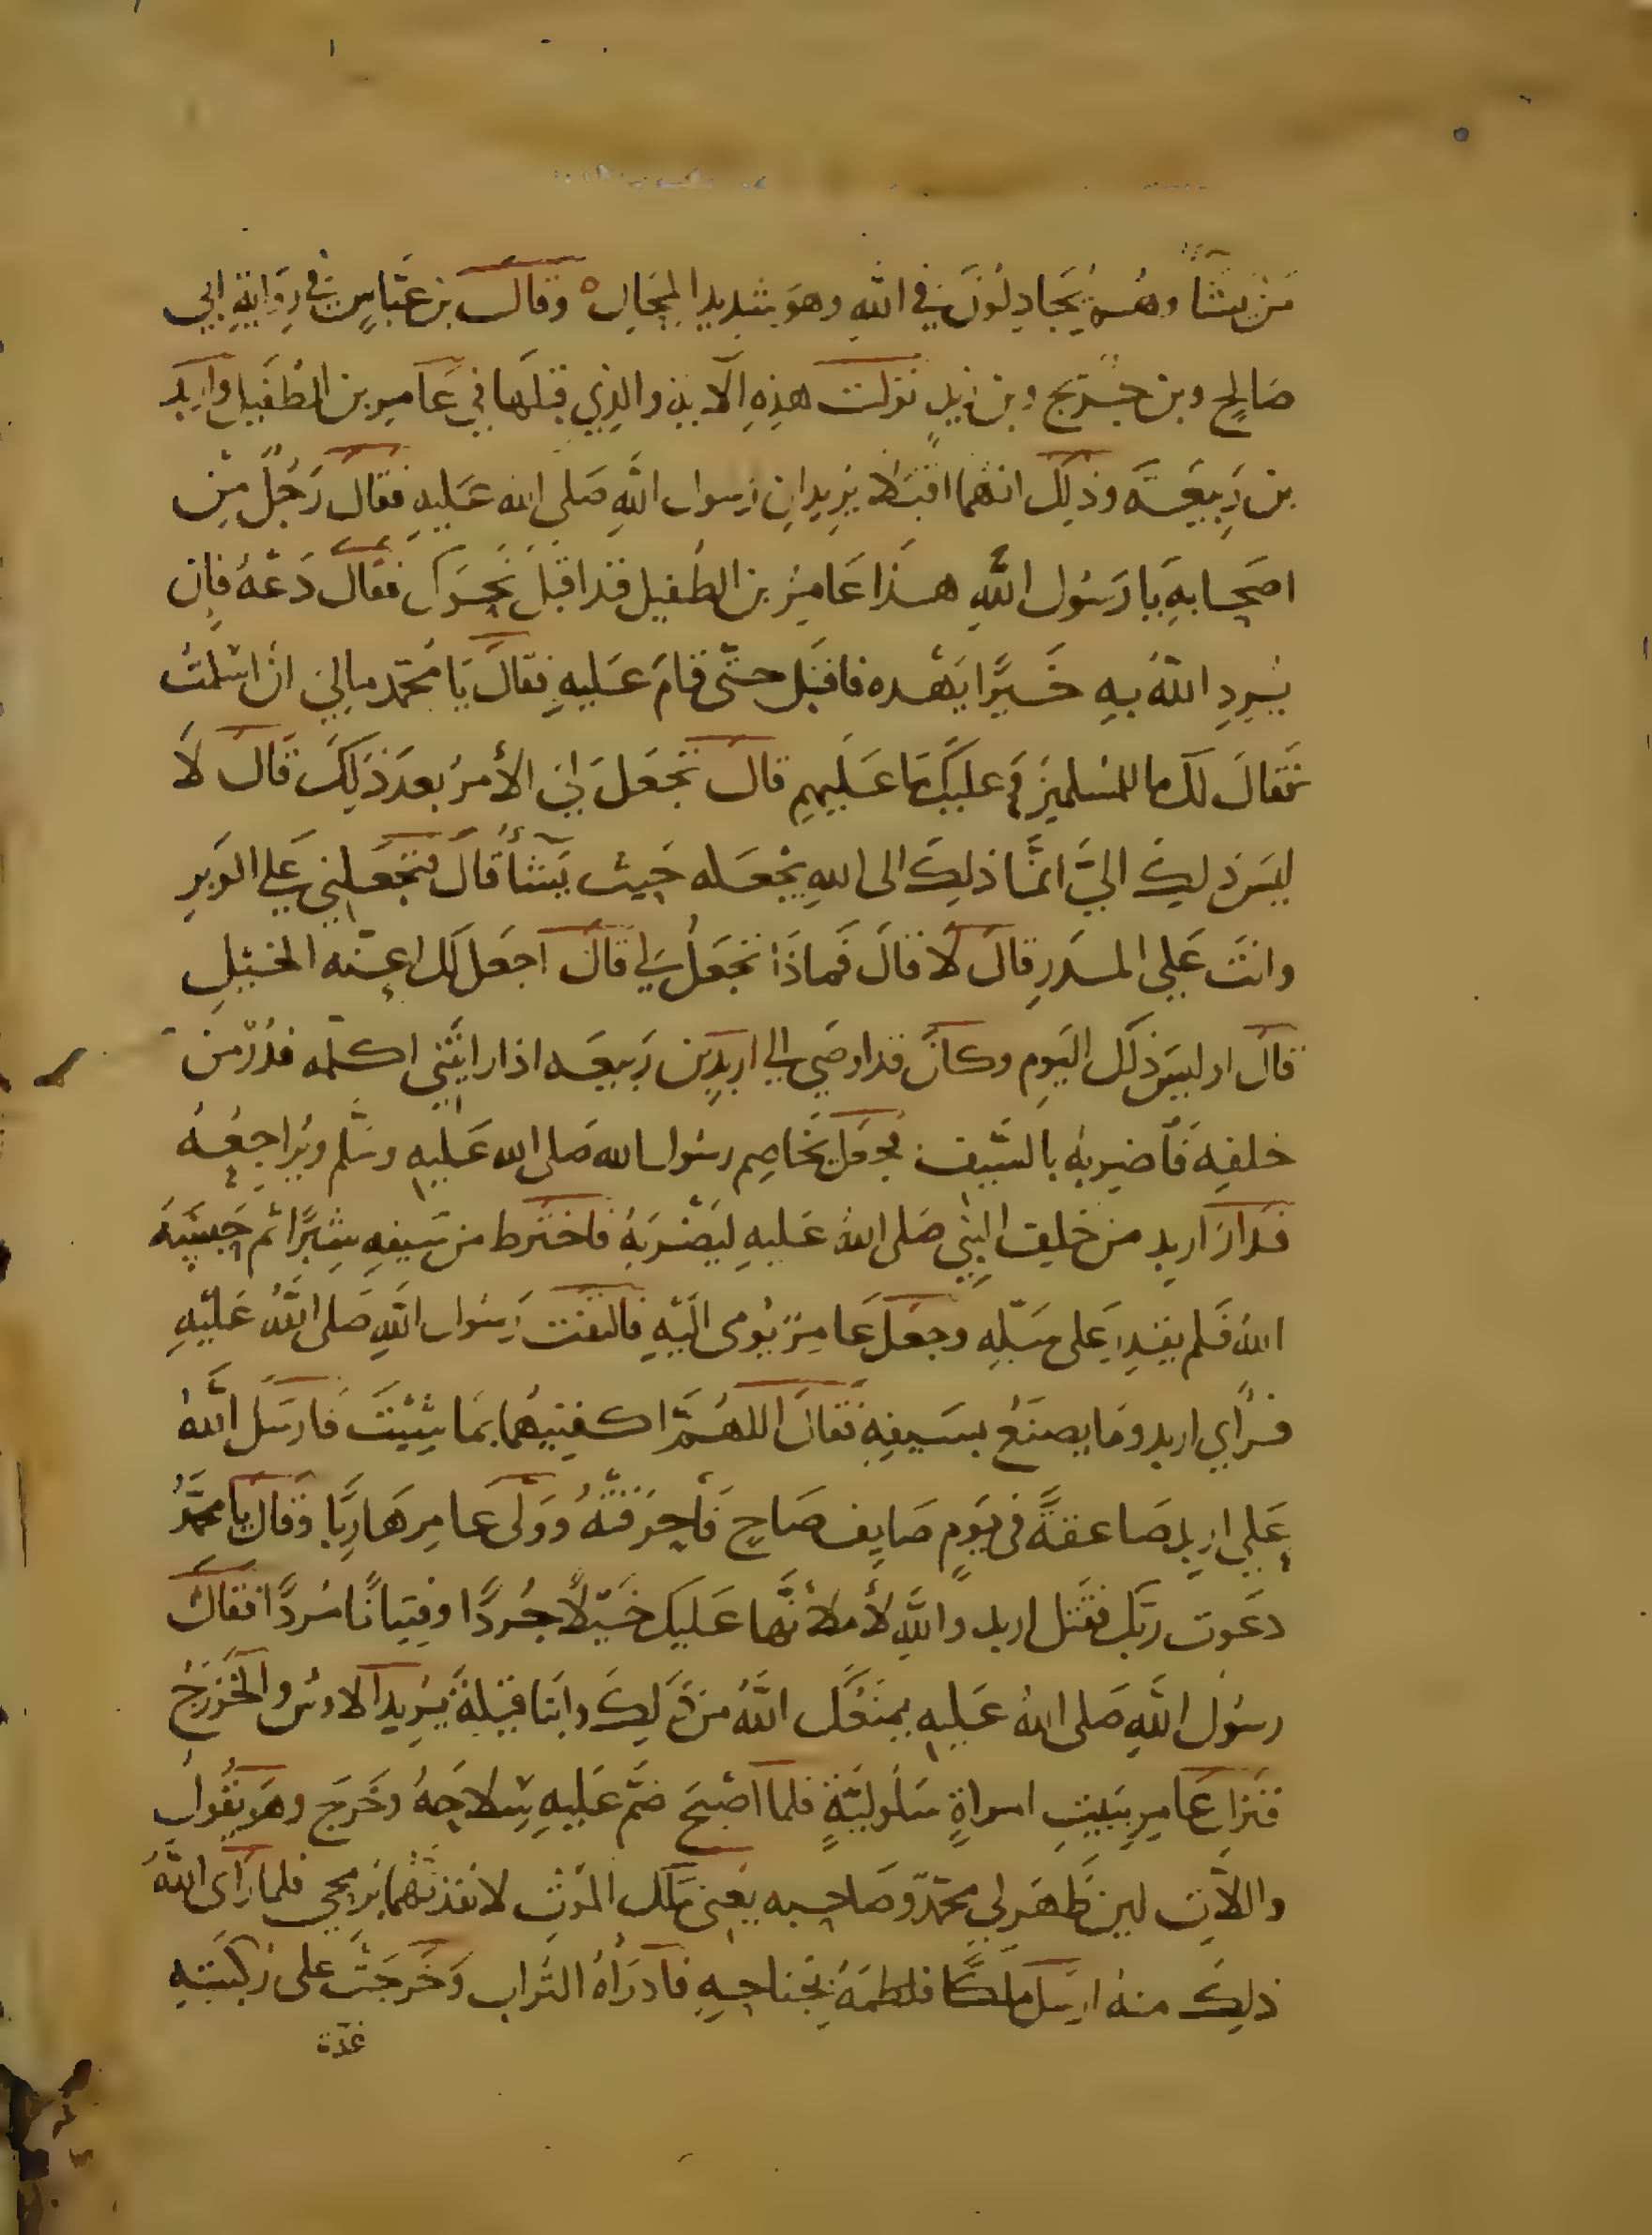 مَنْ يشَآ وهُم يُجَادِلُونَ فِي اللهِ وهوَ شديد المِحَالِ ه وقال بن عَبّاسٍ في رِوَايةِ ابي
صَالحٍ وبن جُريج وبن زيدٍ نزلت هذِهِ الآية والذي قبلها في عَامِر بن الطُفَيل واربد
بن رَبيعَة وذلك انهما اقبَلا يُريدانِ رسول اللهِ صَلى الله عَليهِ فقال رَجُلٌ مِنْ
اصحابهِ يا رَسُول اللهِ هذا عَامِرُ بن الطُفيل قد اقبَلَ نحوَك فقال دَعْهُ فإن
يُرِدِ اللهُ بهِ خَيرًا يَهْده فاقبَل حتّى قامَ عَليهِ فقال يَا محَمّد مالي ان اسْلمتُ
فَقال لك ما للمُسلمينَ وَعليكَ مَا عَليهم قال تجعَل لي الأمرُ بعدَ ذَلِكَ قالَ لَا
ليسَ ذلِكَ اليَّ انمّا ذلِكَ الى اللهِ يجْعَله حَيث يَشَآءُ قالَ فتجعَلني على الوَبرِ
وانتَ عَلى المَدَرِ قال لا قالَ فَماذَا تجعَلُ لي قال اجعَل لَك اعِنّه الخيلِ
قال اوليسَ ذلكَ اليَوم وكانَ قد اوصَي الي اربدِ بن رَبيعَه اذا رايتَني اكلمه فدُرْ من
خلفِهِ فَاضربهُ بالسَّيف فجعَلَ يخَاصِم رسُول الله صَلى الله عَليهِ وسَلم ويُراجِعُهُ
فدارَ اربد من خلف النبي صَلى اللهُ عَليهِ ليَضْربَهُ فاخترط من سَيفهِ شِبرًا ثم حَبسَهُ
اللهُ فَلم يقدِر عَلى سَلّهِ وجعَلَ عَامِرٌ يُومى الَيْهِ فالتفتَ رَسُول اللهِ صَلى اللهُ عَليْهِ
فرأي اربد ومَا يصنَعُ بسَيفِهِ فَقال اللهُمَّ اكفنيهُما بمَا شِيْتَ فَارسَلَ اللهُ
عَلي اربد صَاعقةً في يَومٍ صَايف صَاحٍ فَاحرَقتْهُ وَوَلّى عَامِر هَاربًا وَقالَ يا محمّدُ
دعَوت ربّك فقَتل اربد واللهِ لأملأنّها عَليكَ خَيْلًا جُردًا وفِتيانًا مُردًا فقالَ
رسُول اللهِ صَلى اللهُ عَليهِ يمنَعُكَ اللهُ من ذَلِكَ وابنا قيلَة يُريد الاوسُ والخزرَجُ
فنَزلَ عَامِر ببَيتِ امراةٍ سَلوليّةٍ فلما اصْبحَ ضَم عَليهِ سِلاحَهُ وخَرجَ وهوَ يقُول
واللاتِ لين ظهَر لي محمّد وصَاحِبه يعنِي مَلك الموتِ لانفذنّهُما برمحي فلما رَأى اللهُ
ذلِكَ منهُ ارسَل مَلَكًا فلطمَهُ بجناحيهِ فادرَأهُ التُراب وَخَرجَتْ على رُكبتِهِ
غدّة